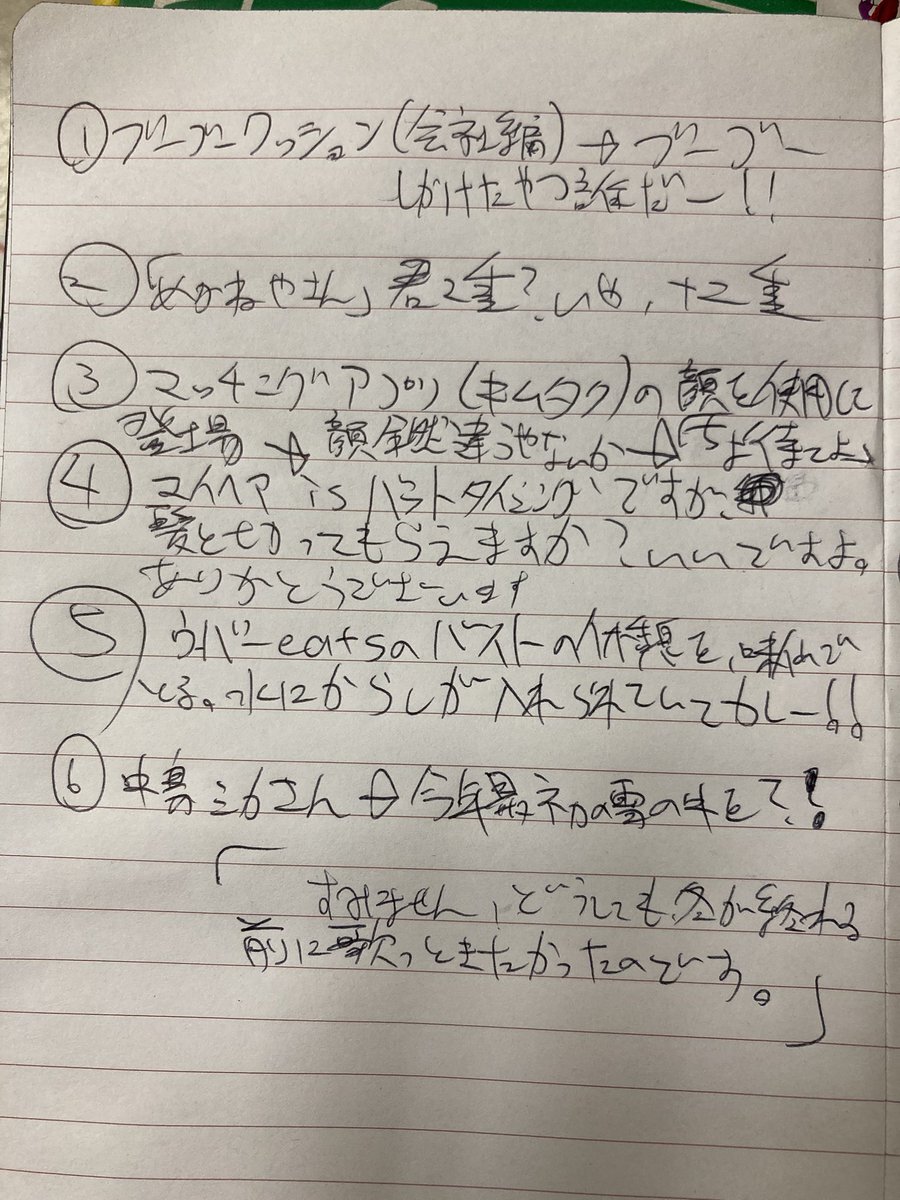 ① ブーブークッション(会社編)→ブーブー
しかけたやつ誰だー!!
② 「めがねやさん」君2重?いや、十二重
③ マッチングアプリ(キムタク)の顔を使用して
登場→顔全然違うやないか→「ちょ待てよ」
④ マイヘア is バットタイミングですが、
髪と切ってもらえますか?いいですよ。
ありがとうございます
⑤ ウーバーeatsの バストの体勢を、味わって
いる。水にからしが入れられていてかしー!!
⑥ 中島ミカさん→今年最初の雪の牛を?!
「すみません、どうしても冬が終わる
前に歌っときたかったのです。」